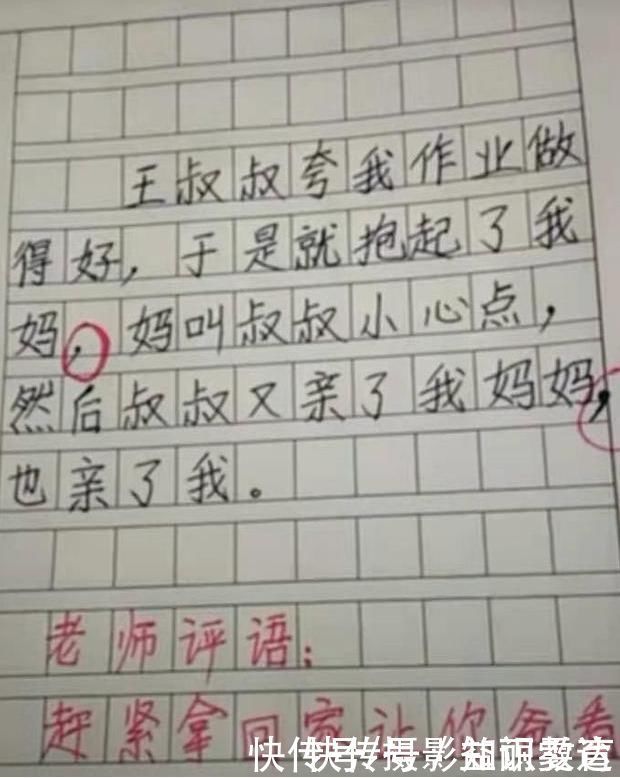 王叔叔夸我作业做
得好，于是就抱起了我
妈，妈叫叔叔小心点，
然后叔叔又亲了我妈妈，
也亲了我。
老师评语：
赶紧拿回家让你爸看
快传号/摄影